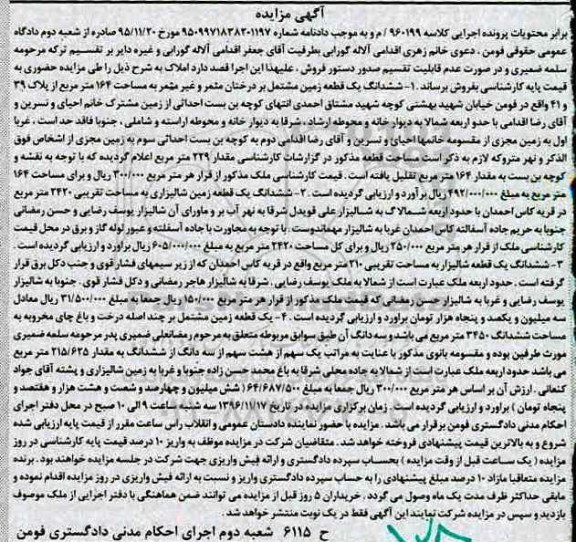 آگهی مزایده
برابر محتویات پرونده اجرایی کلاسه ۹۶۰۱۹۹ / م و به موجب دادنامه شماره ۹۵۰۹۹۷۱۸۳۸۲۰۱۱۹۷ مورخ ۹۵/۱۱/۲۰ صادره از شعبه دوم دادگاه
عمومی حقوقی فومن . دعوی خانم زهری اقدامی آلاله گورابی بطرفیت آقای جعفر اقدامی آلاله گورابی و غیره دایر بر تقسیم ترکه مرحومه
سلمه ضمیری و در صورت عدم قابلیت تقسیم صدور دستور فروش ، علیهذا این اجرا قصد دارد املاک به شرح ذیل را طی مزایده حضوری به
قیمت پایه کارشناسی بفروش برساند .۱- ششدانگ یک قطعه زمین مشتمل بر درختان مثمر و غیر مثمر به مساحت ۱۶۴ متر مربع از پلاک ۳۹
و ۴۱ واقع در فومن خیابان شهید بهشتی کوچه شهید مشتاق احمدی انتهای کوچه بن بست احداثی از زمین مشترک خانم احیای و نسرین و
آقای رضا اقدامی با حدود اربعه شمالا به دیوار خانه و محوطه ارشاد ، شرقا به دیوار خانه و محوطه اراسته و شاملی ، جنوبا فاقد حد است . غربا
اول به زمین مجزی از مقسومه خانمها احیای و نسرین و آقای رضا اقدامی دوم به کوچه بن بست احداثی سوم به زمین مجزی از اشخاص فوق
الذکر و نهر متروکه لازم به ذکر است مساحت قطعه مذکور در گزارشات کارشناسی مقدار ۲۲۹ متر مربع اعلام گردیده که با توجه به نقشه و
کوچه بن بست به مقدار ۱۶۴ متر مربع تقلیل یافته است . قیمت کارشناسی ملک مذکور از قرار هر متر مربع ۳۰۰/۰۰۰ ریال و برای مساحت ۱۶۴
متر مربع به مبلغ ۴۹۲/۰۰۰/۰۰۰ ریال برآورد و ارزیابی گردیده است . ۲- ششدانگ یک قطعه زمین شالیزاری به مساحت تقریبی ۲۴۲۰ متر مربع
در قریه کاس احمدان با حدود اربعه شمالا گ به شالیزار علی قویدل شرقا به نهر آب بر و ماورای آن شالیزار یوسف رضایی و حسن رمضانی
جنوبا به حریم جاده آسفالته کاس احمدان غربا به شالیزار مهماندوست . با توجه به مجاورت با جاده آسفلته و عبور لوله گاز و برق در محل قیمت
کارشناسی ملک از قرار هر متر مربع ۲۵۰/۰۰۰ ریال و برای کل مساحت ۲۴۲۰ متر مربع به مبلغ ۶۰۵/۰۰۰/۰۰۰ ریال برآورد و ارزیابی گردیده است .
۳- ششدانگ یک قطعه شالیزار به مساحت تقریبی ۲۱۰ متر مربع واقع در قریه کاس احمدان که از زیر سیمهای فشار قوی و جنب دکل برق قرار
گرفته است . حدود اربعه ملک عبارت است از شمالا به ملک یوسف رضایی . شرقا به شالیزار هاجر رمضانی و دکل فشار قوی . جنوبا به شالیزار
یوسف رضایی و غربا به شالیزار حسن رمضانی که قیمت ملک مذکور از قرار هر متر مربع ۱۵۰/۰۰۰ ریال جمعا به مبلغ ۳۱/۵۰۰/۰۰۰ ریال معادل
سه میلیون و یکصد و پنجاه هزار تومان براورد و ارزیابی گردیده است .۴- یک قطعه زمین مشتمل بر چند اصله درخت و باغ چای مخروبه به
مساحت ششدانگ ۳۴۵۰ متر مربع می باشد و سه دانگ آن طبق سوابق مربوطه متعلق به مرحوم رمضانعلی ضمیری پدر مرحومه سلمه ضمیری
مورث طرفین بوده و مقسومه بانوی مذکور با عنایت به مراتب یک سهم از هشت سهم از سه دانگ از ششدانگ به مقدار ۲۱۵/۶۲۵ متر مربع
می باشد حدود اربعه ملک عبارت است از شمالا به جاده محلی شرقا به باغ محمد حسن زاده جنوبا و غربا به زمین شالیزاری و پشته آقای جواد
کنعانی . ارزش آن بر اساس هر متر مربع ۳۰۰/۰۰۰ ریال جمعا به مبلغ ۶۴/۶۸۷/۵۰۰( شش میلیون و چهارصد و شصت و هشت هزار و هفتصد و
پنجاه تومان ) براورد و ارزیابی گردیده است . زمان برگزاری مزایده در تاریخ ۱۳۹۶/۱۱/۱۷ سه شنبه ساعت ۹ الی ۱۰ صبح در محل دفتر اجرای
احکام مدنی دادگستری فومن برقرار می باشد . مزایده با حضور نماینده دادستان عمومی و انقلاب راس ساعت مقرر از قیمت پایه ارزیابی شده
شروع و به بالاترین قیمت پیشنهادی فروخته خواهد شد . متقاضیان شرکت در مزایده موظف به واریز ۱۰ درصد قیمت پایه کارشناسی در روز
مزایده ( یک ساعت قبل از وقت مزایده ) بحساب سپرده دادگستری و ارائه فیش واریزی جهت شرکت در جلسه مزایده خواهند بود . برنده
مزایده متعاقبا مازاد ۱۰ درصد مبلغ پیشنهادی را به حساب سپرده دادگستری واریز و نسبت به ارائه فیش واریزی در روز مزایده اقدام نموده و
مابقی حداکثر ظرف مدت یک ماه وصول می گردد . خریداران ۵ روز قبل از مزایده می توانند ضمن هماهنگی با دفتر اجرایی از ملک موصوف
بازدید و سپس در مزایده شرکت نمایند این آگهی فقط در یک نوبت منتشر خواهد شد .
ح ۶۱۱۵ شعبه دوم اجرای احکام مدنی دادگستری فومن